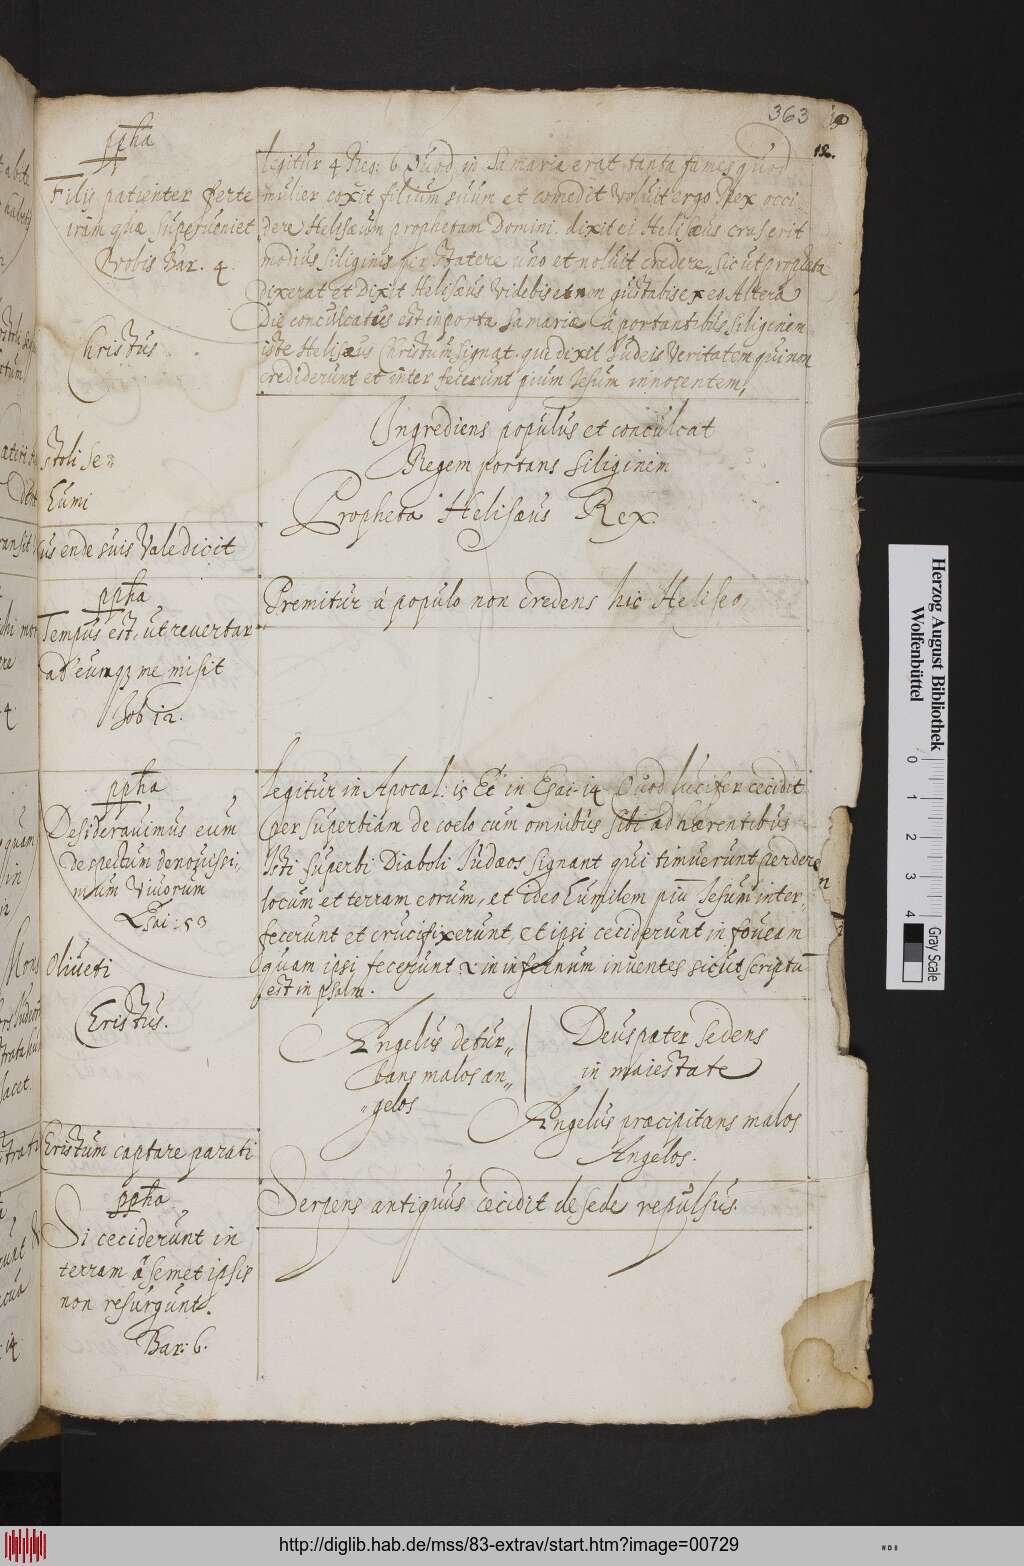 363
12.
ppha
Filij patienter ferte
iram quæ superueniet
Vobis Bar. 4.
Christus
stoli se
Eumi
us ende suis Valedicit
ppha
Tempus est, ut revertar
ad eum q; me misit
Tob 12.
ppha
Desiderauimus eum
despectum de nouissi„
mum Virorum
Esai: 53
Oliueti
Christus.
Christum captare parati
ppha
Si ceciderunt in
terram á semet ipsis
non resurgunt.
Bar: 6.
legitur 4 Reg: 6 Quod in Samaria erat tanta fames quod
mulier coxit filium suum et comedit Voluit ergo Rex occi„
dere Helisæum prophetam Domini. dixit ei Helisæus cras erit
modius siliginis pro Statere uno et noluit credere, sicut propheta
dixerat et Dixit Helisæus Videbis et non gustabis ex eo Altera
die conculcatus est in porta Samariæ á portantibus siliginem
iste Helisæus Christum signat. qui dixit Judeis Veritatem qui non
crediderunt et inter fecerunt pium Jesum innocentem,
Ingrediens populus et conculcat
Regem portans siliginem
Propheta Helisæus Rex.
Premitur á populo non credens hic Heliseo,
legitur in Apocal: 12 Et in Esai. 14 Quod lucifer cecidit
per superbiam de coelo cum omnibus sibi adhærentibus
Isti superbi Diaboli Judæos signant qui timuerunt perdere
locum et terram eorum, et ideo humilem piū Jesum inter„
fecerunt et crucifixerunt, et ipsi ceciderunt in foueam
quam ipsi fecerunt & in infernum inuentes sicut scriptū
est in psalm.
Angelus detur„
bans malos an„
„gelos
Deus pater sedens
in maiestate
Angelus præcipitans malos
Angelos.
Serpens antiquus cecidit de sede repulsus.
Herzog August Bibliothek
Wolfenbüttel
0 1 2 3 4
Gray Scale
http://diglib.hab.de/mss/83-extrav/start.htm?image=00729